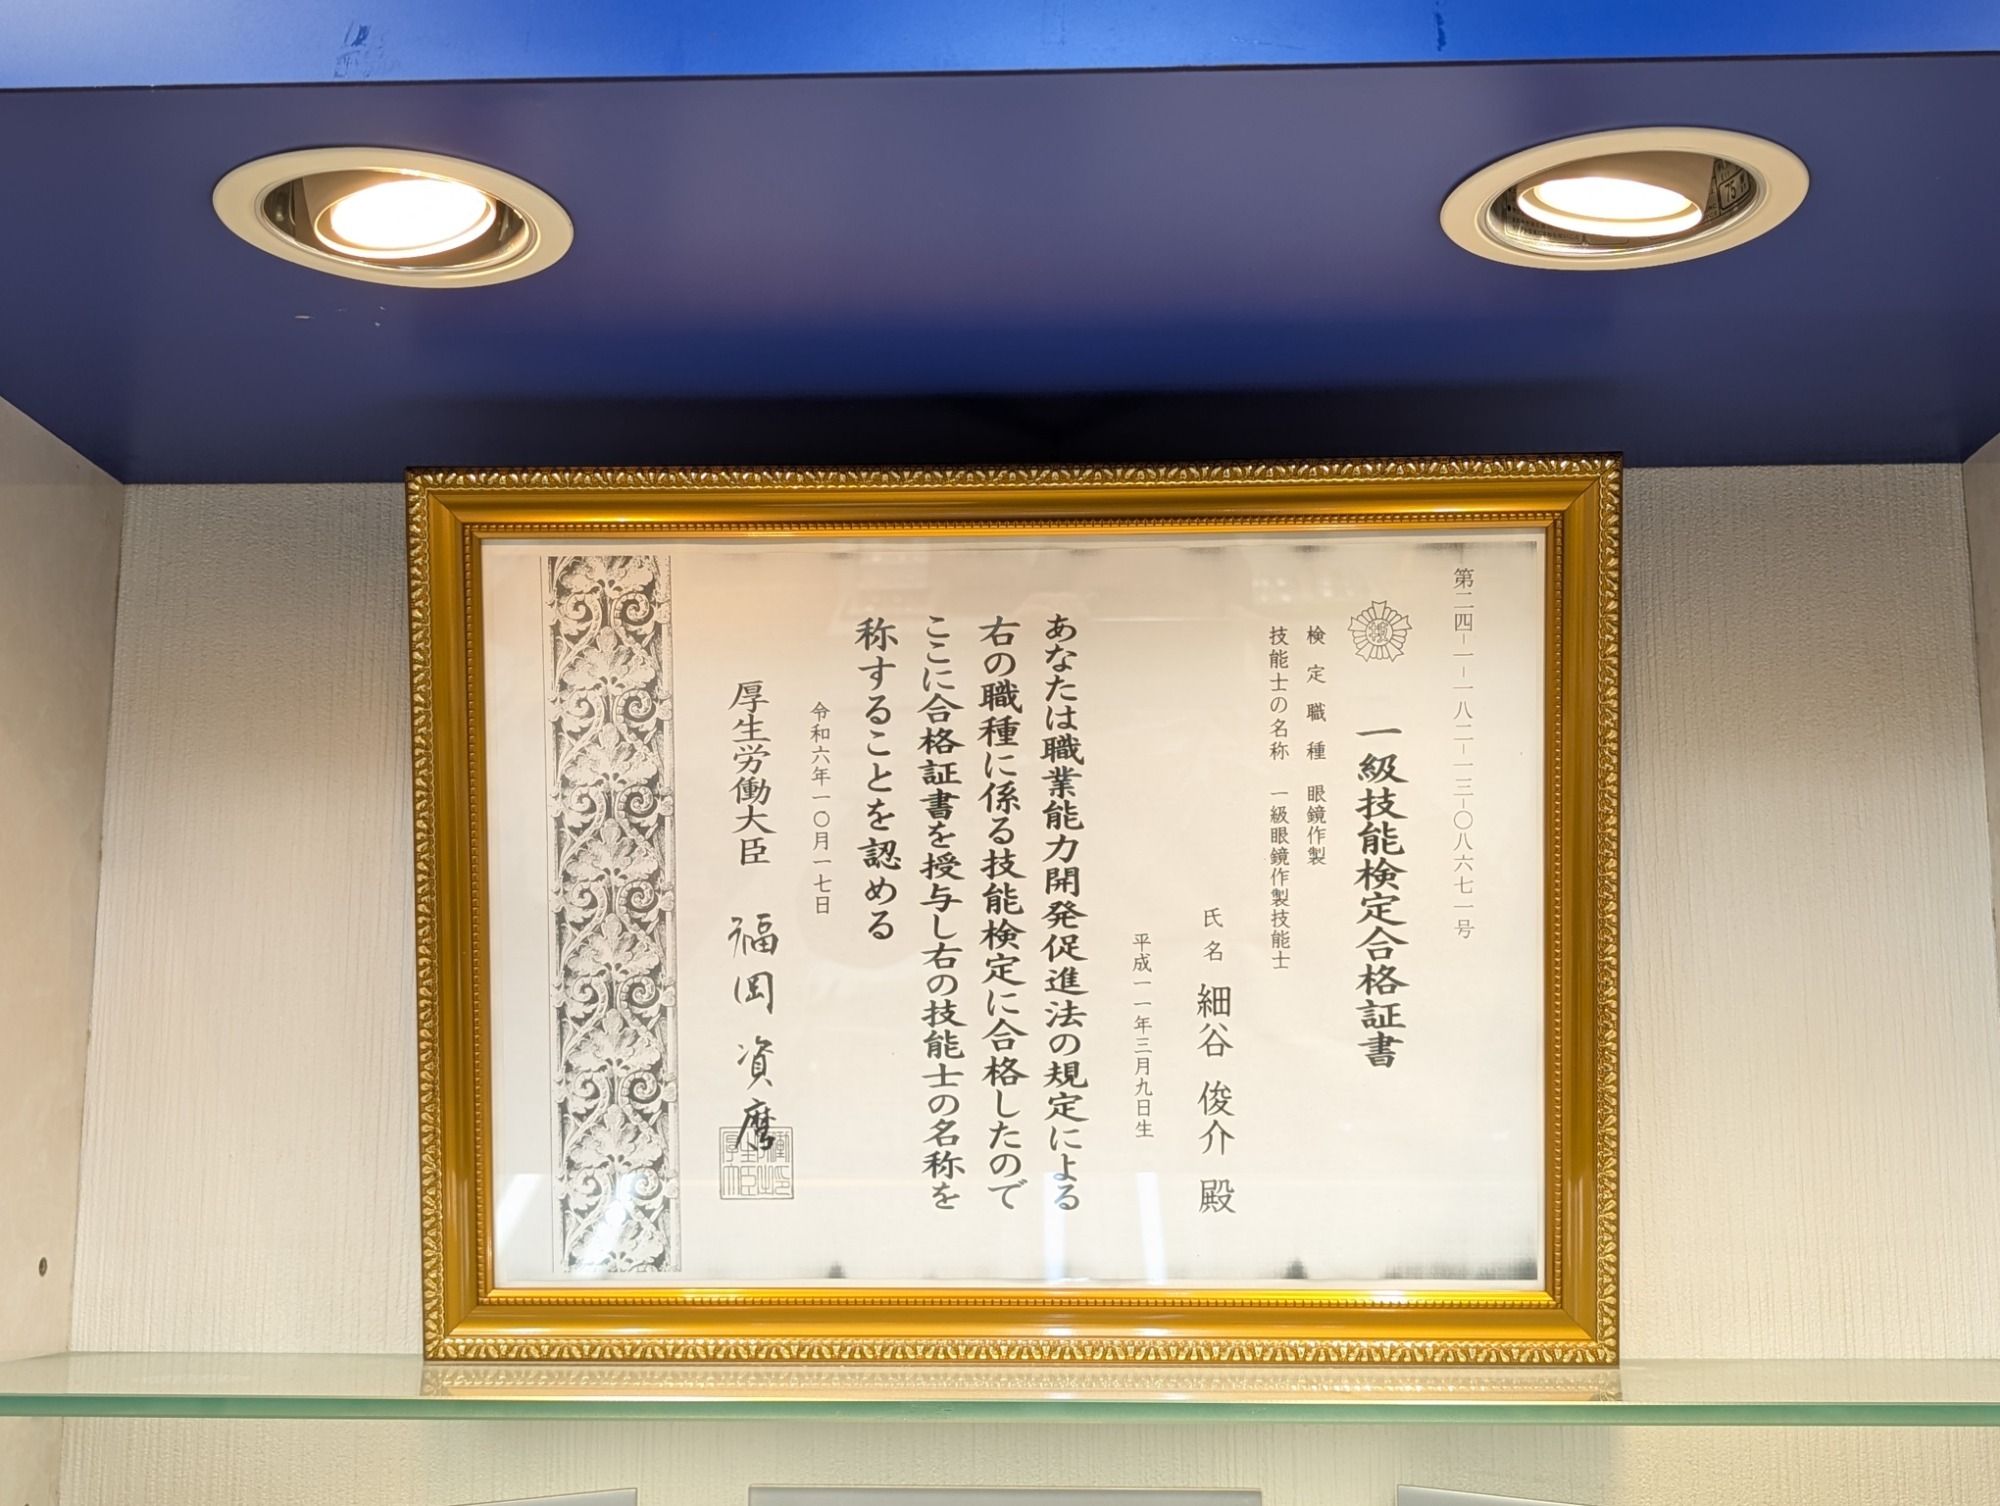 第二四－一－一八二－一三－〇八六七一号
一級技能検定合格証書
検定職種 眼鏡作製
技能士の名称 一級眼鏡作製技能士
氏名 細谷 俊介 殿
平成一一年三月九日生
あなたは職業能力開発促進法の規定による
右の職種に係る技能検定に合格したので
ここに合格証書を授与し右の技能士の名称を
称することを認める
令和六年一〇月一七日
厚生労働大臣 福岡 資麿
75